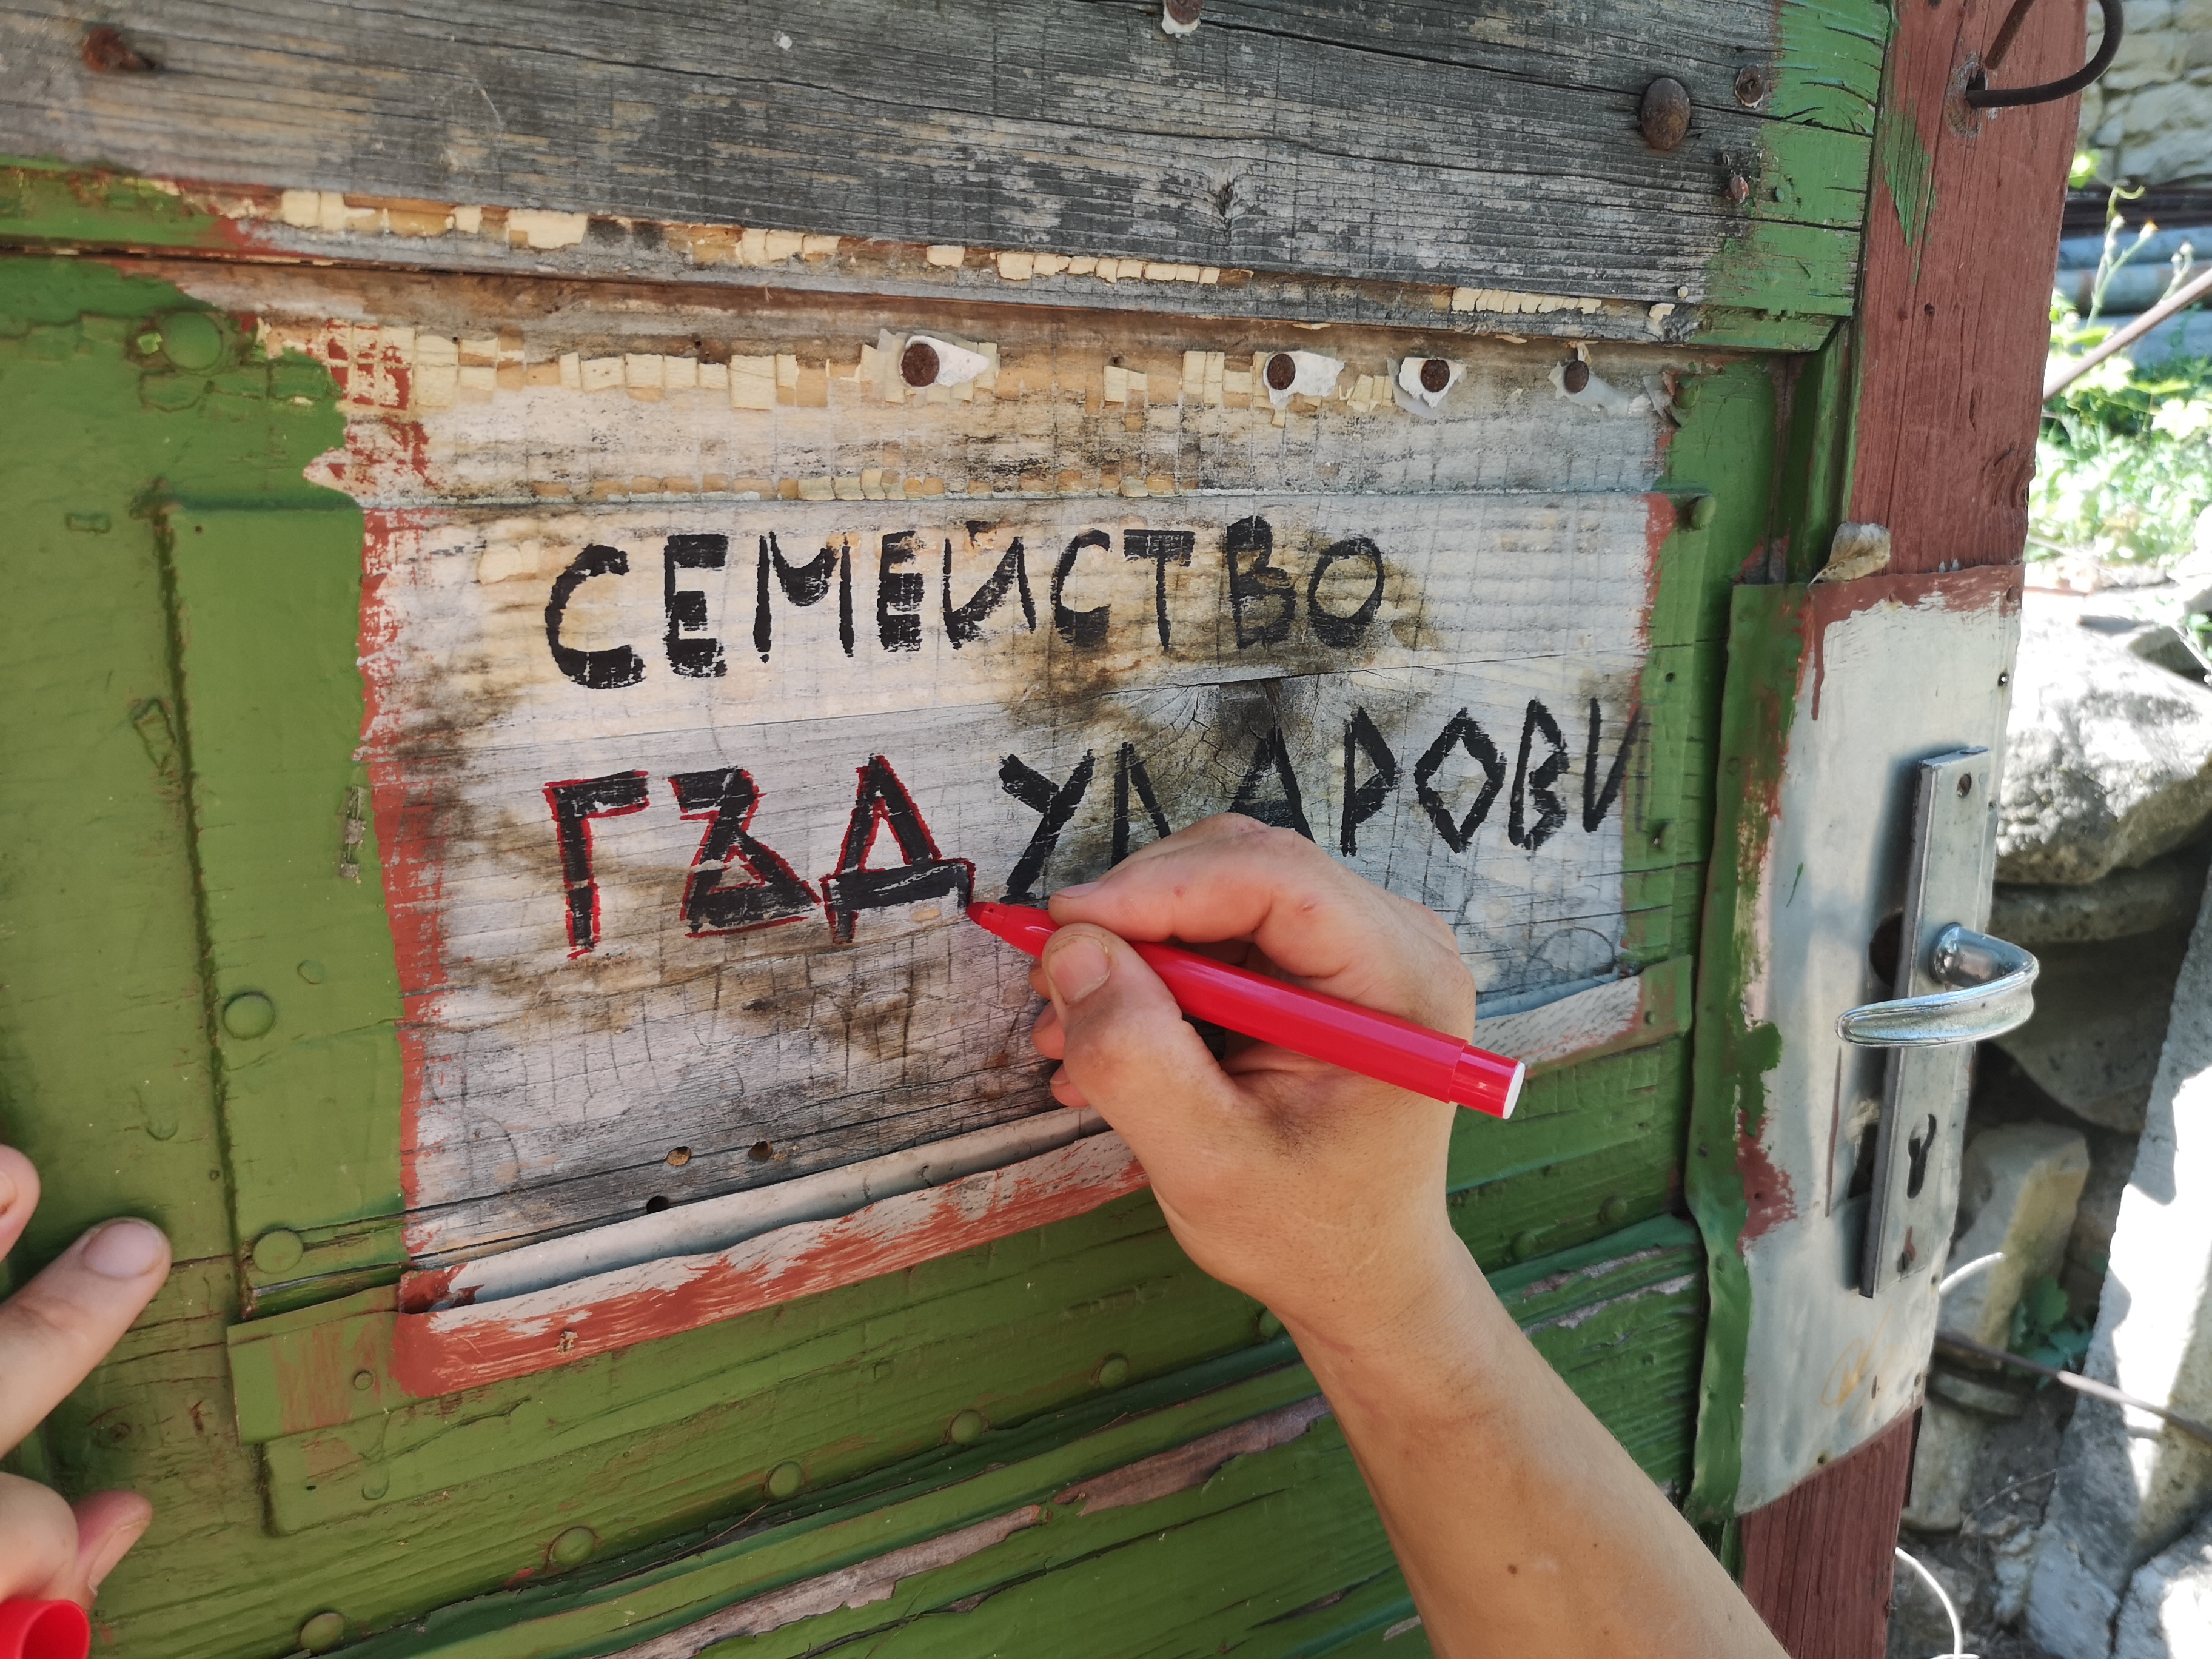 СЕМЕЙСТВО
ГЪДУЛАРОВИ